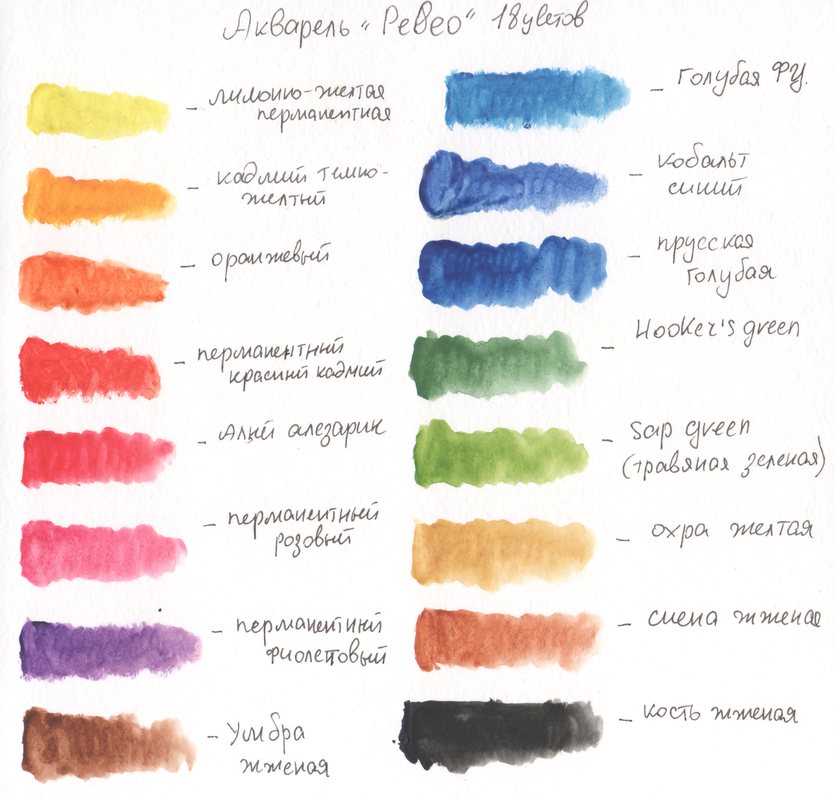 Акварель "Ревео" 18 цветов
– лимонно-желтая
перманентная
– кадмий темно-
желтый
– оранжевый
– перманентный
красный кадмий
– Алый ализарин
– перманентный
розовый
– перманентный
фиолетовый
– Умбра
жженая
– Голубая ФЦ.
– кобальт
синий
– прусская
голубая
– Hooker's green
– Sap green
(травяная зеленая)
– охра желтая
– сиена жженая
– кость жженая